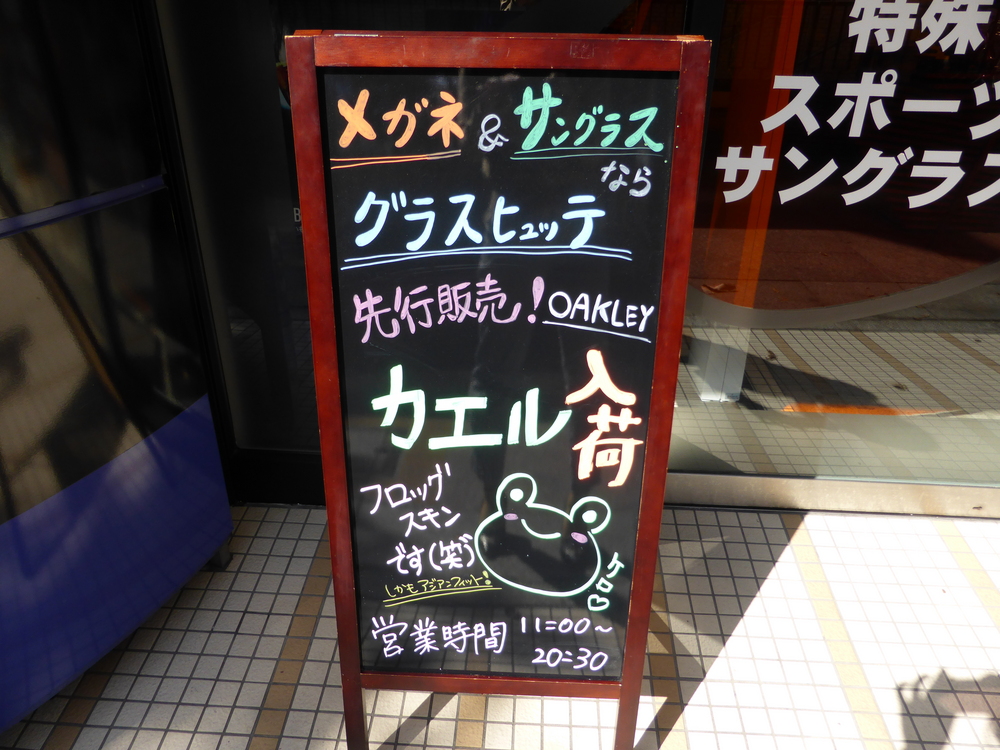 メガネ & サングラス
なら
グラスヒュッテ
先行販売! OAKLEY
カエル入荷
フロッグ
スキン
です(笑)
しかもアジアンフィット!
ケロ♡
営業時間 11=00~
20=30
特殊
スポーツ
サングラス